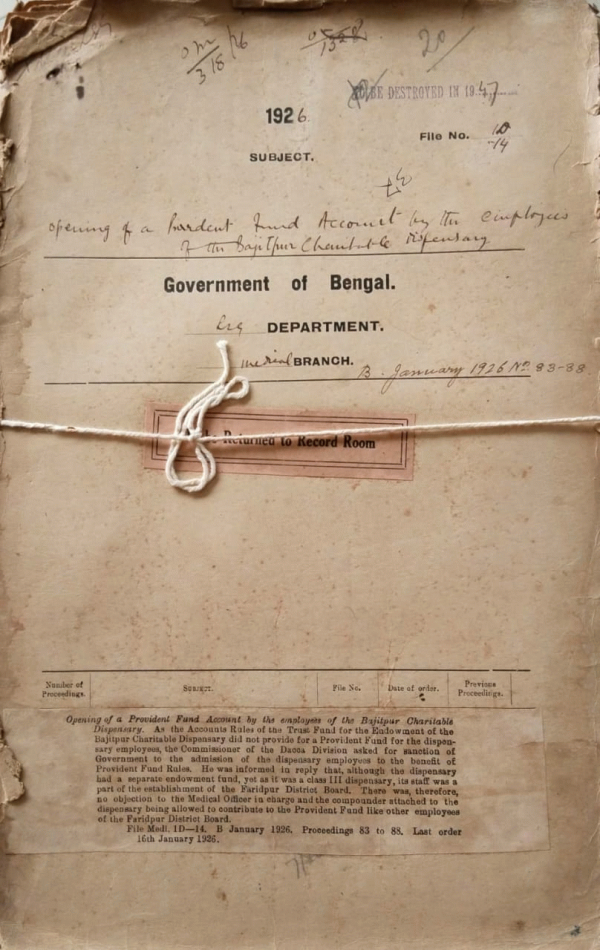 3/8/26
20
TO BE DESTROYED IN 1947
1926
File No. 1D/-14
SUBJECT.
opening of a Provident Fund Account by the employees
of the Bajitpur Charitable Dispensary
Government of Bengal.
DEPARTMENT.
medical BRANCH.
B. January 1926 No. 83-88
Returned to Record Room
Number of Proceedings.
SUBJECT.
File No.
Date of order.
Previous Proceedings.
Opening of a Provident Fund Account by the employees of the Bajitpur Charitable
Dispensary. As the Accounts Rules of the Trust Fund for the Endowment of the
Bajitpur Charitable Dispensary did not provide for a Provident Fund for the dispen-
sary employees, the Commissioner of the Dacca Division asked for sanction of
Government to the admission of the dispensary employees to the benefit of
Provident Fund Rules. He was informed in reply that, although the dispensary
had a separate endowment fund, yet as it was a class III dispensary, its staff was a
part of the establishment of the Faridpur District Board. There was, therefore,
no objection to the Medical Officer in charge and the compounder attached to the
dispensary being allowed to contribute to the Provident Fund like other employees
of the Faridpur District Board.
File Medl. 1D—14. B January 1926. Proceedings 83 to 88. Last order
16th January 1926.